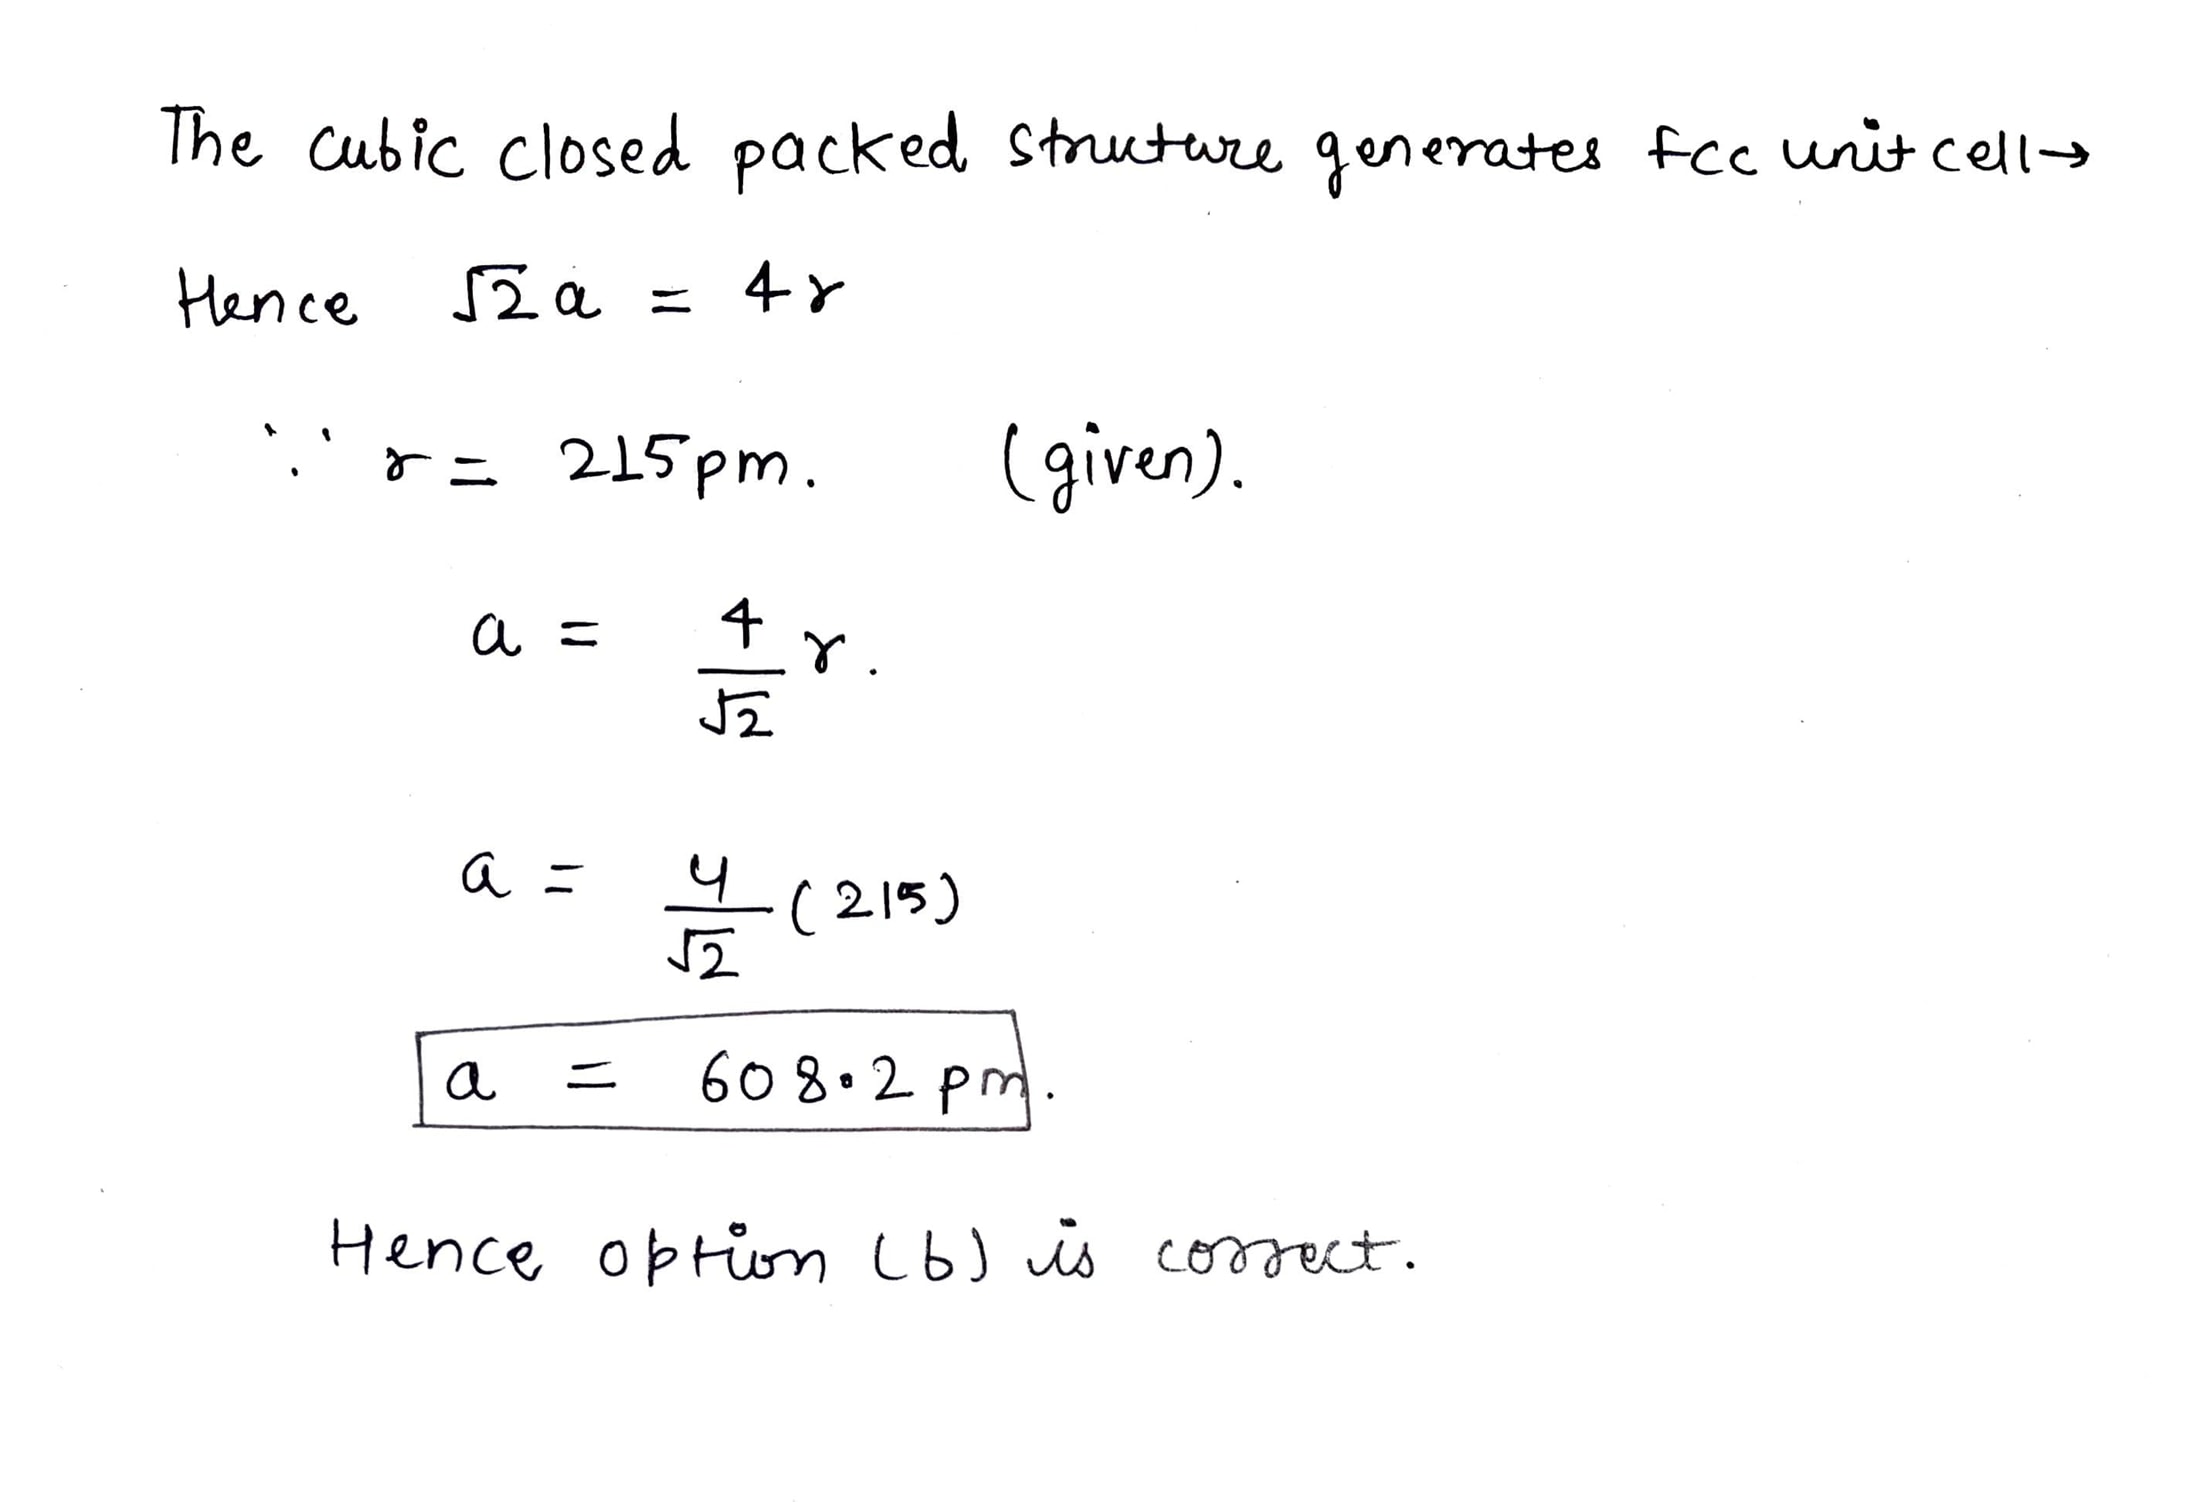 The cubic closed packed structure generates fcc unit cell→
Hence √2 a = 4r
∵ r = 215pm. (given).
a = 4/√2 r.
a = 4/√2 (215)
a = 608.2 pm.
Hence option (b) is correct.